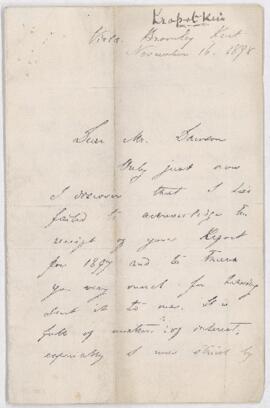 Kropotkin
Viola. Bromley Kent
November 16. 1898
Dear Mr. Dawson
Only just now
I discover that I had
failed to acknowledge the
receipt of your Report
for 1897 and to thank
you very much for having
sent it to me. It is
full of matter of interest,
especially I was struck by